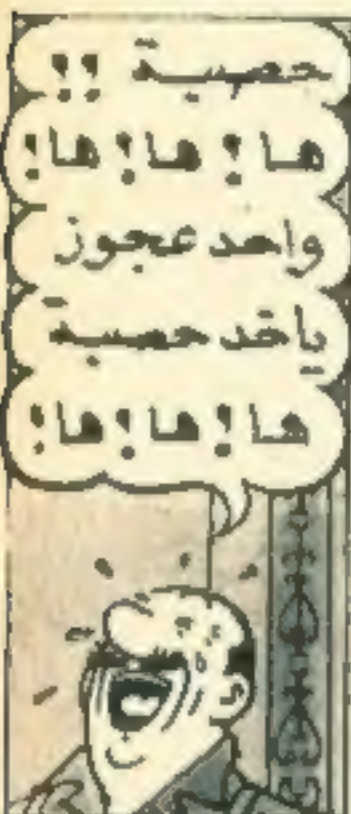 حصبة !!
ها ! ها ! ها !
واحد عجوز
ياخد حصبة
ها ! ها ! ها !